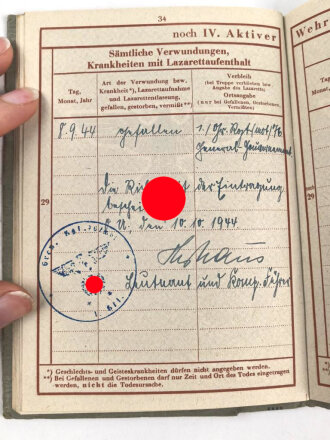 34
noch IV. Aktiver
Wehr
Sämtliche Verwundungen,
Krankheiten mit Lazarettaufenthalt
Tag, Monat, Jahr
Art der Verwundung bzw. Krankheit*), Lazarettaufnahme und Lazarettentlassung, gefallen, gestorben, vermißt**)
Verbleib (bei Truppe verblieben bzw. Angabe des Lazaretts) Ortsangabe (nur bei Gefallenen, Gestorbenen, Vermißten)
8.9.44 gefallen
General Gouvernement
29
Die Richt der Eintragung
beschei
O.U., den 10.10.1944
Leutnant und Komp. Führer
*) Geschlechts- und Geisteskrankheiten dürfen nicht angegeben werden.
**) Bei Gefallenen und Gestorbenen darf nur Zeit und Ort des Todes eingetragen werden, nicht die Todesursache.